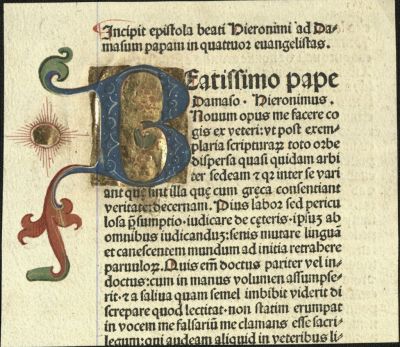 Incipit epistola beati Hieronimi ad Da-
masum papam in quatuor euangelistas.
Beatissimo pape
Damaso · Hieronimus.
Nouum opus me facere co
gis ex veteri: vt post exem-
plaria scripturaꝝ toto orbe
dispersa quasi quidam arbi
ter sedeam ⁊ qꝛ inter se vari
ant que sint illa que cum greca consentiant
veritate: decernam. Pius labor sed pericu
losa p̄sumptio · iudicare de ceteris · ipsuꝫ ab
omnibus iudicanduꝫ: senis mutare linguā
et canescentem mundum ad initia retrahere
paruuloꝝ. Quis em̄ doctus pariter vel in-
doctus: cum in manus volumen assumpse-
rit · ⁊ a saliua quam semel imbibit viderit di
screpare quod lectitat · non statim erumpat
in vocem me falsariū me clamans esse sacri-
legum: qui audeam aliquid in veteribus li-